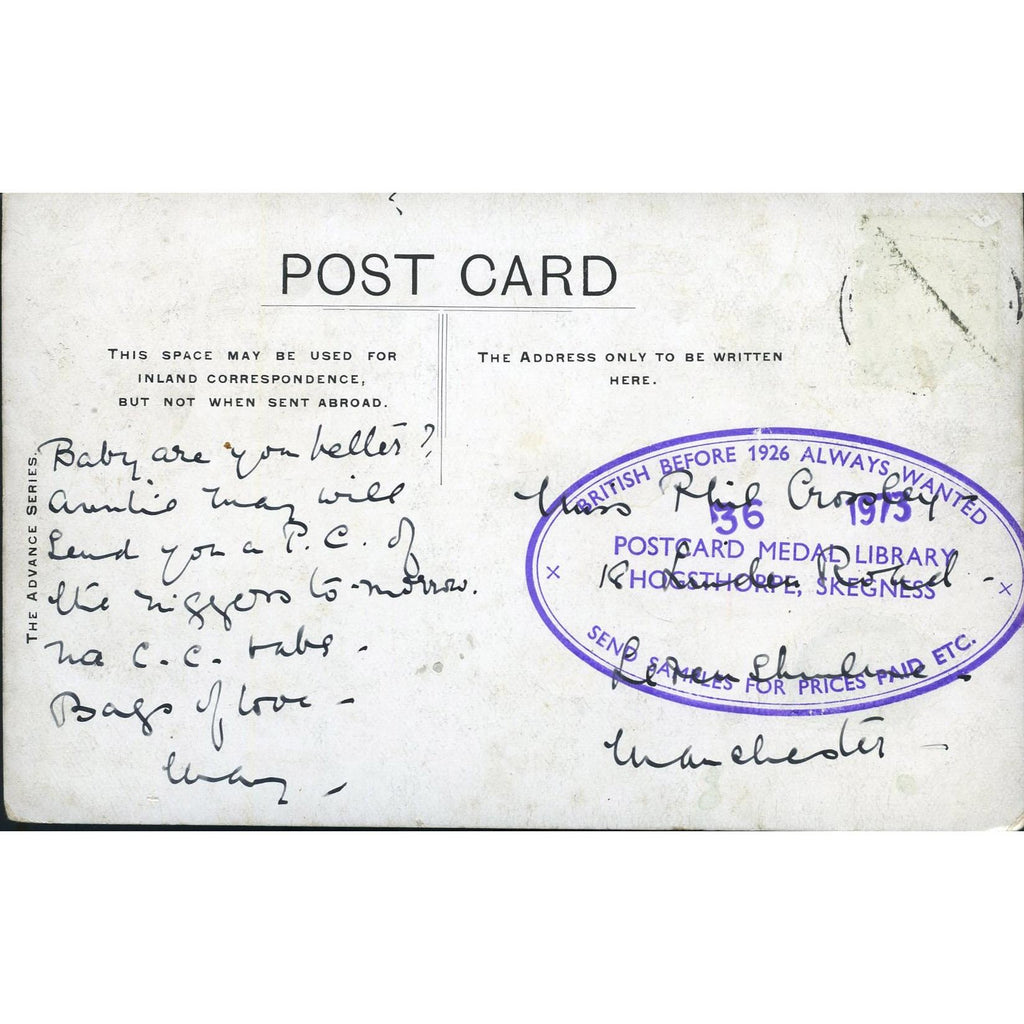 POST CARD
THIS SPACE MAY BE USED FOR
INLAND CORRESPONDENCE,
BUT NOT WHEN SENT ABROAD.
THE ADDRESS ONLY TO BE WRITTEN
HERE.
THE ADVANCE SERIES.
Baby are you better?
Auntie May will
send you a P.C. of
the niggers to-morrow.
C.C.
Bags of love -
May -
Miss Phil Crossley
18 Linden Road -
Manchester -
BRITISH BEFORE 1926 ALWAYS WANTED
36 1973
POSTCARD MEDAL LIBRARY
HOGSTHORPE, SKEGNESS
SEND SAMPLES FOR PRICES PAID ETC.